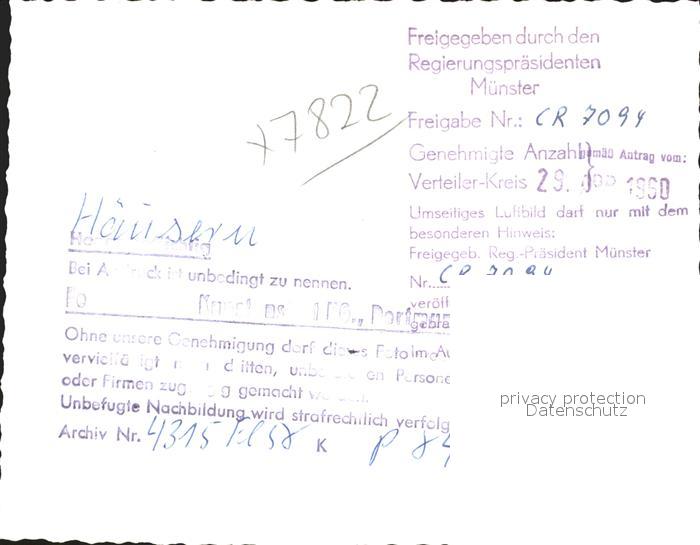 Freigegeben durch den
Regierungspräsidenten
Münster
x7822
Freigabe Nr.: CR 7094
Genehmigte Anzahl} gemäß Antrag vom:
Verteiler-Kreis 29. 1960
Umseitiges Luftbild darf nur mit dem
besonderen Hinweis:
Freigegeb. Reg.-Präsident Münster
Nr.... CR 7094
veröff
gebra
Häusern
Bei A ck ist unbedingt zu nennen.
Fo
Ohne unsere Genehmigung darf dieses Foto im Au
vervielfä igt ditten, unb en Persone
oder Firmen zug g gemacht we
Unbefugte Nachbildung wird strafrechtlich verfolg
Archiv Nr. 4315 K P 84
privacy protection
Datenschutz